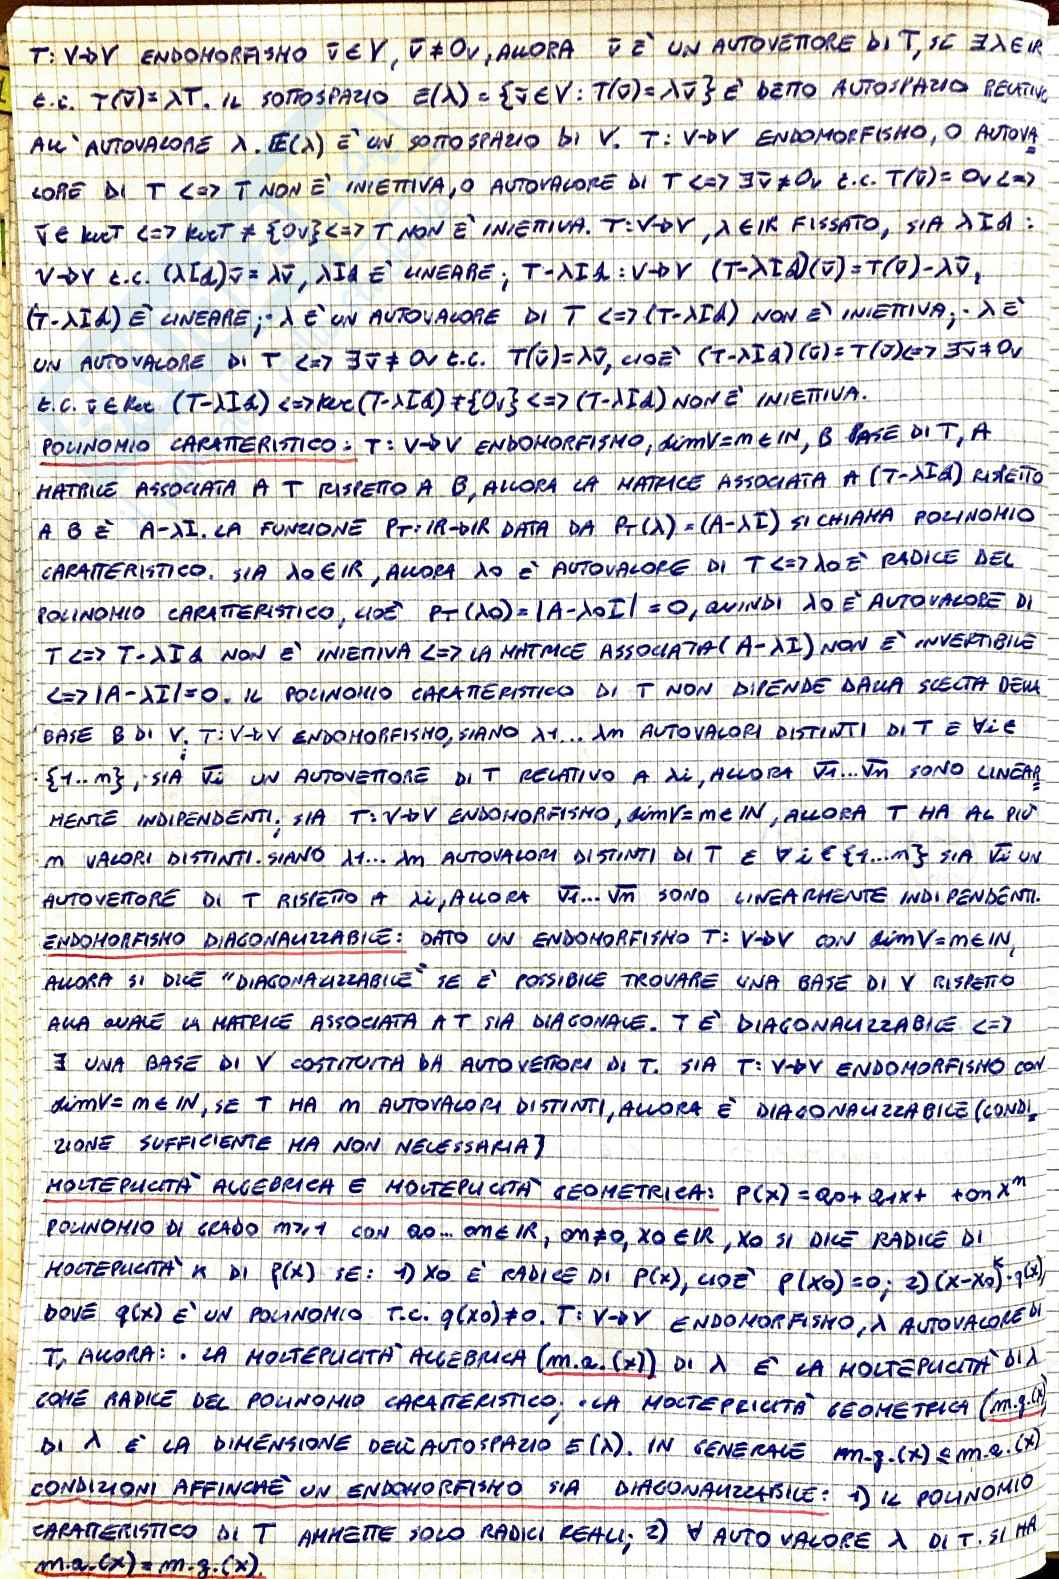 T: V→V ENDOMORFISMO v̄ ∈ V, v̄ ≠ 0v, ALLORA v̄ È UN AUTOVETTORE DI T, SE ∃ λ ∈ IR
t.c. T(v̄) = λT. IL SOTTOSPAZIO E(λ) = {v̄ ∈ V : T(v̄) = λv̄} È DETTO AUTOSPAZIO RELATIVO
ALL'AUTOVALORE λ. E(λ) È UN SOTTOSPAZIO DI V. T: V→V ENDOMORFISMO, 0 AUTOVA=
LORE DI T <=> T NON È INIETTIVA, 0 AUTOVALORE DI T <=> ∃ v̄ ≠ 0v t.c. T(v̄) = 0v <=>
v̄ ∈ KerT <=> KerT ≠ {0v} <=> T NON È INIETTIVA. T: V→V, λ ∈ IR FISSATO, SIA λId :
V→V t.c. (λId)v̄ = λv̄, λId È LINEARE; T-λId : V→V (T-λId)(v̄) = T(v̄)-λv̄,
(T-λId) È LINEARE; · λ È UN AUTOVALORE DI T <=> (T-λId) NON È INIETTIVA; · λ È
UN AUTOVALORE DI T <=> ∃ v̄ ≠ 0v t.c. T(v̄) = λv̄, CIOÈ (T-λId)(v̄) = T(v̄) <=> ∃ v̄ ≠ 0v
t.c. v̄ ∈ Ker (T-λId) <=> Ker (T-λId) ≠ {0v} <=> (T-λId) NON È INIETTIVA.
POLINOMIO CARATTERISTICO: T: V→V ENDOMORFISMO, dimV = m ∈ IN, B BASE DI T, A
MATRICE ASSOCIATA A T RISPETTO A B, ALLORA LA MATRICE ASSOCIATA A (T-λId) RISPETTO
A B È A-λI. LA FUNZIONE PT: IR→IR DATA DA PT(λ) = (A-λI) SI CHIAMA POLINOMIO
CARATTERISTICO. SIA λ0 ∈ IR, ALLORA λ0 È AUTOVALORE DI T <=> λ0 È RADICE DEL
POLINOMIO CARATTERISTICO, CIOÈ PT(λ0) = |A-λ0I| = 0, QUINDI λ0 È AUTOVALORE DI
T <=> T-λId NON È INIETTIVA <=> LA MATRICE ASSOCIATA (A-λI) NON È INVERTIBILE
<=> |A-λI| = 0. IL POLINOMIO CARATTERISTICO DI T NON DIPENDE DALLA SCELTA DELLA
BASE B DI V. T: V→V ENDOMORFISMO, SIANO λ1... λm AUTOVALORI DISTINTI DI T E ∀ i ∈
{1...m}, SIA v̄i UN AUTOVETTORE DI T RELATIVO A λi, ALLORA v̄1...v̄m SONO LINEAR=
MENTE INDIPENDENTI; SIA T: V→V ENDOMORFISMO, dimV = m ∈ IN, ALLORA T HA AL PIÙ
m VALORI DISTINTI. SIANO λ1... λm AUTOVALORI DISTINTI DI T E ∀ i ∈ {1...m} SIA v̄i UN
AUTOVETTORE DI T RISPETTO A λi, ALLORA v̄1...v̄m SONO LINEARMENTE INDIPENDENTI.
ENDOMORFISMO DIAGONALIZZABILE: DATO UN ENDOMORFISMO T: V→V CON dimV = m ∈ IN,
ALLORA SI DICE "DIAGONALIZZABILE" SE È POSSIBILE TROVARE UNA BASE DI V RISPETTO
ALLA QUALE LA MATRICE ASSOCIATA A T SIA DIAGONALE. T È DIAGONALIZZABILE <=>
∃ UNA BASE DI V COSTITUITA DA AUTOVETTORI DI T. SIA T: V→V ENDOMORFISMO CON
dimV = m ∈ IN, SE T HA m AUTOVALORI DISTINTI, ALLORA È DIAGONALIZZABILE (CONDI=
ZIONE SUFFICIENTE MA NON NECESSARIA)
MOLTEPLICITÀ ALGEBRICA E MOLTEPLICITÀ GEOMETRICA: P(X) = a0 + a1x + + amX^m
POLINOMIO DI GRADO m≥1 CON a0... am ∈ IR, am ≠ 0, X0 ∈ IR, X0 SI DICE RADICE DI
MOLTEPLICITÀ K DI P(X) SE: 1) X0 È RADICE DI P(X), CIOÈ P(X0) = 0; 2) (X-X0)^K · q(X),
DOVE q(X) È UN POLINOMIO T.C. q(X0) ≠ 0. T: V→V ENDOMORFISMO, λ AUTOVALORE DI
T, ALLORA: · LA MOLTEPLICITÀ ALGEBRICA (m.a.(x)) DI λ È LA MOLTEPLICITÀ DI λ
COME RADICE DEL POLINOMIO CARATTERISTICO; · LA MOLTEPRICITÀ GEOMETRICA (m.g.(x)
DI λ È LA DIMENSIONE DELL'AUTOSPAZIO E(λ). IN GENERALE m.g.(x) ≤ m.a.(x)
CONDIZIONI AFFINCHÈ UN ENDOMORFISMO SIA DIAGONALIZZABILE: 1) IL POLINOMIO
CARATTERISTICO DI T AMMETTE SOLO RADICI REALI; 2) ∀ AUTOVALORE λ DI T. SI HA
m.a.(x) = m.g.(x).